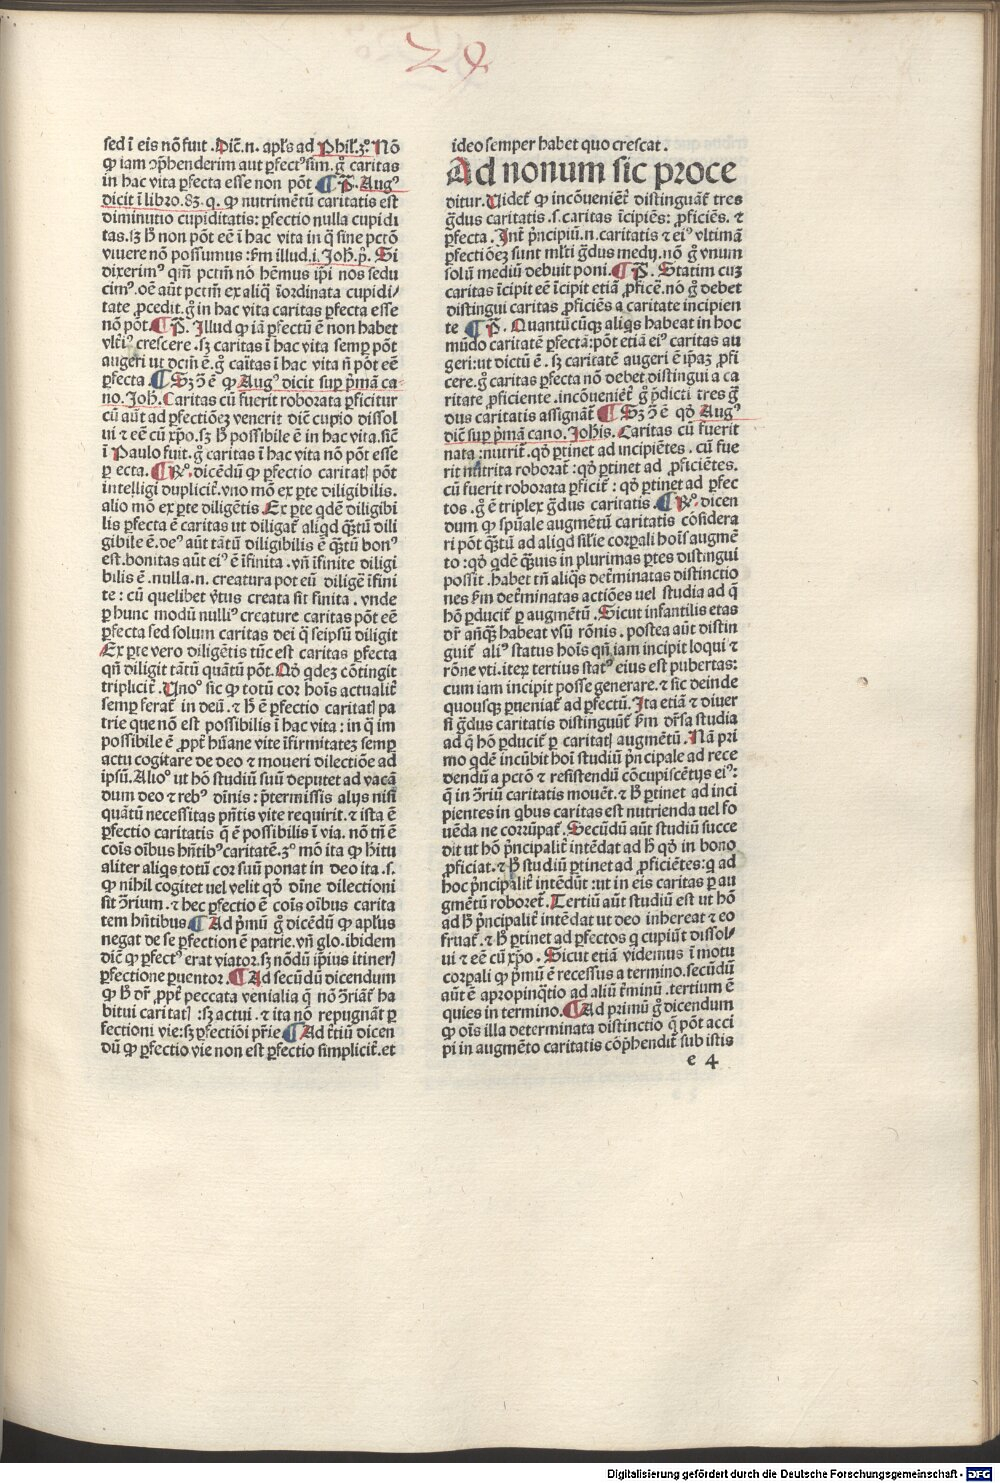 29
sed ĩ eis nõ fuit .Dic̃.n. apl's ad Phil'.3°. Nõ
ꝙ iam ↄp̃henderim aut ꝑfectꝰ sim. g̊ caritas
in hac vita ꝑfecta esse non põt ¶ P̃. Augꝰ
dicit ĩ libro.83.q. ꝙ nutrimẽtũ caritatis est
diminutio cupiditatis: ꝑfectio nulla cupidi
tas. sꝫ h̃ non põt eẽ ĩ hac vita in q̃ sine pctõ
viuere nõ possumus : fm̃ illud .i. Joh̃. p̃. Si
dixerimꝰ qm̃ pctm̃ nõ hẽmus ip̃i nos sedu
cimꝰ. oẽ aũt pctm̃ ex aliq̃ ĩordinata cupidi/
tate ꝓcedit. g̊ in hac vita caritas ꝑfecta esse
nõ põt. ¶ P̃. Illud ꝙ iã ꝑfectũ ẽ non habet
vlt̃iꝰ crescere . sꝫ caritas ĩ hac vita semꝑ põt
augeri ut dcm̃ ẽ. g̊ caĩtas ĩ hac vita ñ põt eẽ
ꝑfecta. ¶ Sꝫ ↄ̃ ẽ ꝙ Augꝰ dicit suꝑ p̃mã ca-
no. Joh̃. Caritas cũ fuerit roborata ꝑficitur
cũ aũt ad ꝑfectiõeꝫ venerit dic̃ cupio dissol
ui ⁊ eẽ cũ xp̃o. sꝫ h̃ possibile ẽ in hac vita. sic̃
ĩ Paulo fuit. g̊ caritas ĩ hac vita nõ põt esse
ꝑ ecta. ¶ R̃°. dicẽdũ ꝙ ꝑfectio caritatꝭ põt
intelligi duplicit̃. vno mõ ex ꝑte diligibilis.
alio mõ ex ꝑte diligẽtis. Ex ꝑte qdẽ diligibi
lis ꝑfecta ẽ caritas ut diligat̃ aliqd q̃ꝫtũ dili
gibile ẽ. deꝰ aũt tãtũ diligibilis ẽ q̃ꝫtũ bonꝰ
est. bonitas aũt eiꝰ ẽ ĩfinita . vñ ĩfinite diligi
bilis ẽ . nulla .n. creatura pot eũ diligẽ ĩfini
te : cũ quelibet v̾tus creata sit finita . vnde
ꝑ hunc modũ nulliꝰ creature caritas põt eẽ
ꝑfecta sed solum caritas dei q̃ seipsũ diligit
Ex ꝑte vero diligẽtis tũc est caritas ꝑfecta
qñ diligit tãtũ quãtũ põt. Qð qdeꝫ cõtingit
triplicit̃. Unoº sic ꝙ totũ cor hoĩs actualit̃
semꝑ ferat̃ in deũ . ⁊ h̃ ẽ ꝑfectio caritatꝭ pa
trie que nõ est possibilis ĩ hac vita : in q̃ im
possibile ẽ ꝓpt̃ hũane vite ĩfirmitateꝫ semꝑ
actu cogitare de deo ⁊ moueri dilectiõe ad
ipsũ. Alioº ut hõ studiũ suũ deputet ad vacã
dum deo ⁊ rebꝰ diuĩis : p̃termissis alijs nisi
quãtũ necessitas pñtis vite requirit . ⁊ ista ẽ
ꝑfectio caritatis q̃ ẽ possibilis ĩ via. nõ tñ ẽ
coĩs oĩbus hñtibꝰ caritatẽ. 3° mõ ita ꝙ hitu
aliter aliqs totũ cor suũ ponat in deo ita .s.
ꝙ nihil cogitet uel velit qð diuĩe dilectioni
sit ↄ̃rium . ⁊ hec ꝑfectio ẽ coĩs oĩbus carita
tem hñtibus ¶ Ad p̃mũ g̊ dicẽdũ ꝙ apl'us
negat de se ꝑfectionẽ patrie. vñ glo. ibidem
dic̃ ꝙ ꝑfectꝰ erat viator. sꝫ nõdũ ip̃ius itinerꝭ
ꝑfectione ꝑuentor. ¶ Ad secũdũ dicendum
ꝙ h̃ dr̃ ꝓpt̃ peccata venialia q̃ nõ ↄ̃riãt̃ ha
bitui caritatꝭ : sꝫ actui . ⁊ ita nõ repugnãt ꝑ
fectioni vie: sꝫ ꝑfectiõi pr̃ie ¶ Ad t̾tiũ dicen
dũ ꝙ ꝑfectio vie non est ꝑfectio simplicit̃. et
ideo semper habet quo crescat .
Ad nonum sic proce
ditur. Uidet̃ ꝙ incõueniẽt̃ distinguãt̃ tres
g̃dus caritatis .s. caritas ĩcipiẽs: ꝓficiẽs. ⁊
ꝑfecta . Int̃ p̃ncipiũ.n. caritatis ⁊ eiꝰ vltimã
ꝑfectiõeꝫ sunt ml'ti g̃dus medij. nõ g̊ vnum
solũ mediũ debuit poni. ¶ P̃. Statim cuꝫ
caritas ĩcipit eẽ ĩcipit etiã ꝓficẽ. nõ g̊ debet
distingui caritas ꝓficiẽs a caritate incipien
te ¶ P̃. Quantũcũqꝫ aliqs habeat in hoc
mũdo caritatẽ ꝑfectã: põt etiã eiꝰ caritas au
geri: ut dictũ ẽ . sꝫ caritatẽ augeri ẽ ip̃aꝫ ꝓfi
cere. g̊ caritas ꝑfecta nõ debet distingui a ca
ritate ꝓficiente . incõueniẽt̃ g̊ p̃dicti tres g̃
dus caritatis assignãt̃ ¶ Sꝫ ↄ̃ ẽ qð Augꝰ
dic̃ suꝑ p̃mã cano. Joh̃is. Caritas cũ fuerit
nata : nutrit̃. qð ꝑtinet ad incipiẽtes . cũ fue
rit nutrita roborat̃ : qð ꝑtinet ad ꝓficiẽtes.
cũ fuerit roborata ꝑficit̃ : qð ꝑtinet ad ꝑfec
tos. g̊ ẽ triplex g̃dus caritatis. ¶ R̃°. dicen
dum ꝙ spũale augmẽtũ caritatis cõsidera
ri põt q̃ꝫtũ ad aliqd sil'ie corꝑali hoĩs augmẽ
to : qð qdẽ q̃ꝫuis in plurimas ꝑtes distingui
possit . habet tñ aliq̃s det̾minatas distinctio
nes fm̃ det̾minatas actiões vel studia ad q̃
hõ ꝑducit̃ ꝑ augmẽtũ . Sicut infantilis etas
dr̃ anq̃ꝫ habeat vsũ rõnis . postea aũt distin
guit̃ aliꝰ status hoĩs qñ iam incipit loqui ⁊
rõne vti. iteꝝ tertius statꝰ eius est pubertas:
cum iam incipit posse generare. ⁊ sic deinde
quousqꝫ ꝑueniat̃ ad ꝑfectũ. Ita etiã ⁊ diuer
si g̃dus caritatis distinguũt̃ fm̃ dr̃sa studia
ad q̃ hõ ꝑducit̃ ꝑ caritatꝭ augmẽtũ . Nã pri
mo qdẽ incũbit hoĩ studiũ p̃ncipale ad rece
dendũ a pctõ ⁊ resistendũ cõcupiscẽtijs eiꝰ:
q̃ in ↄ̃riũ caritatis mouẽt. ⁊ h̃ ꝑtinet ad inci
pientes in qbus caritas est nutrienda uel fo
uẽda ne corrũpat̃. Secũdũ aũt studiũ succe
dit ut hõ p̃ncipalit̃ intẽdat ad h̃ qð in bono
ꝓficiat. ⁊ h̃ studiũ ꝑtinet ad ꝓficiẽtes: q ad
hoc p̃ncipalit̃ intẽdũt : ut in eis caritas ꝑ au
gmẽtũ roboret̃. Tertiũ aũt studiũ est ut hõ
ad h̃ p̃ncipalit̃ intẽdat ut deo inhereat ⁊ eo
fruat̃ . ⁊ h̃ ꝑtinet ad ꝑfectos q cupiũt dissol/
ui ⁊ eẽ cũ xp̃o . Sicut etiã videmus ĩ motu
corꝑali ꝙ p̃mũ ẽ recessus a termino. secũdũ
aũt ẽ apropinq̃tio ad aliũ t̾minũ .tertium ẽ
quies in termino. ¶ Ad primũ g̊ dicendum
ꝙ oĩs illa determinata distinctio q̃ põt acci
pi in augmẽto caritatis cõp̃hendit̃ sub istis
e 4
Digitalisierung gefördert durch die Deutsche Forschungsgemeinschaft - DFG